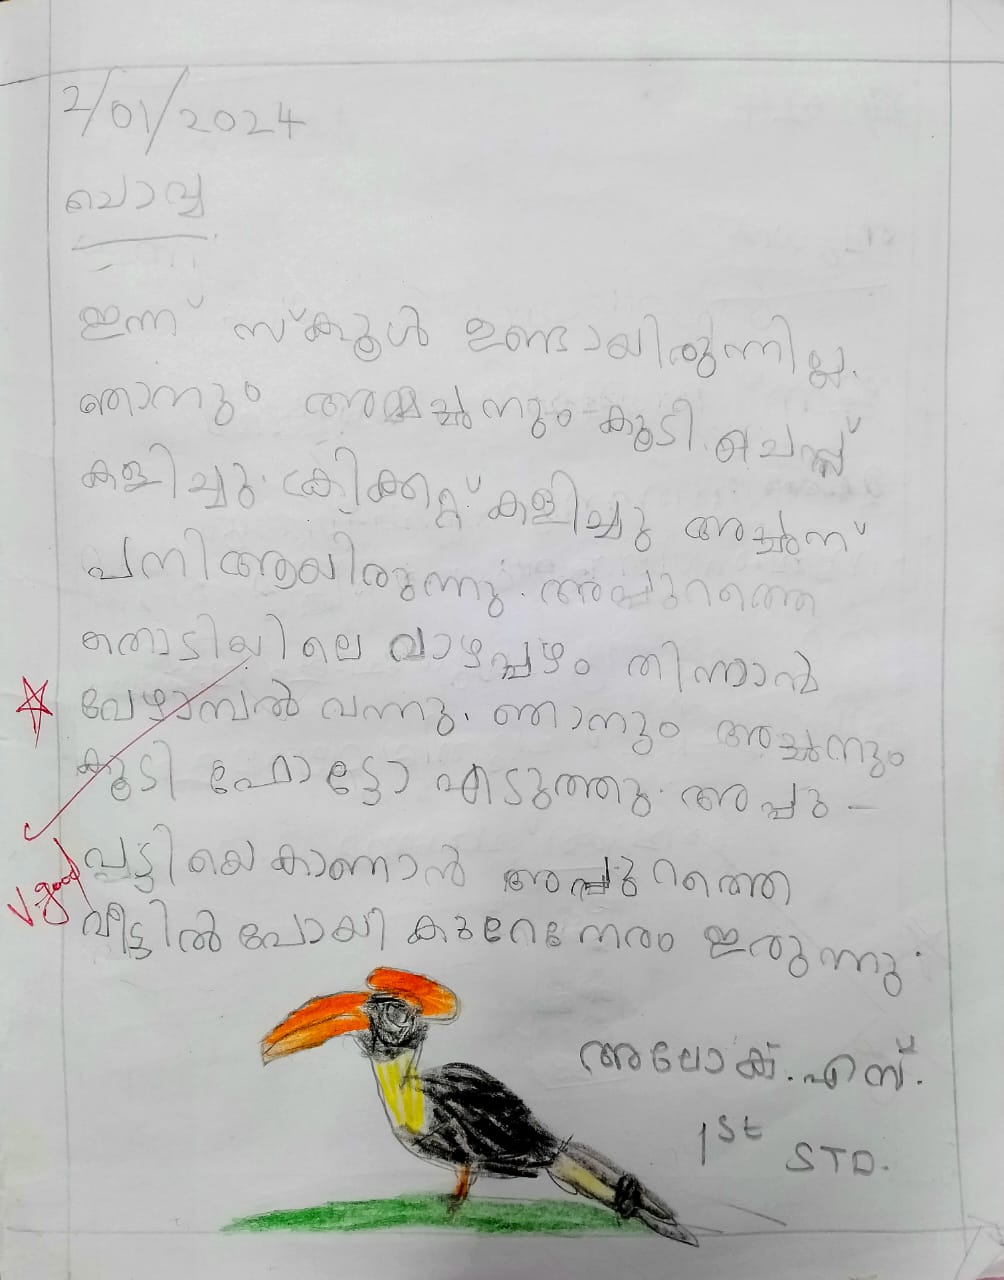 2/01/2024
ചൊവ്വ
ഇന്ന് സ്കൂൾ ഉണ്ടായിരുന്നില്ല.
ഞാനും അമ്മച്ചനും കൂടി ചെസ്സ്
കളിച്ചു. ക്രിക്കറ്റ് കളിച്ചു അച്ഛന്
പനി ആയിരുന്നു. അപ്പുറത്തെ
തൊടിയിലെ വാഴപ്പഴം തിന്നാൻ
വേഴാമ്പൽ വന്നു. ഞാനും അച്ഛനും
കൂടി ഫോട്ടോ എടുത്തു. അപ്പു -
പട്ടിയെ കാണാൻ അപ്പുറത്തെ
V.good
വീട്ടിൽ പോയി കുറേനേരം ഇരുന്നു.
അലോക്. എസ്.
1st STD.